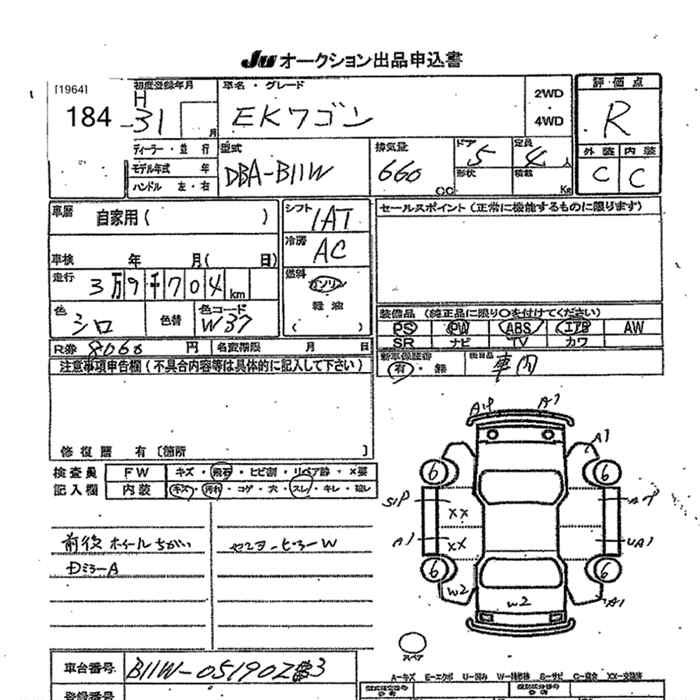 JU オークション出品申込書
[1964]
184
初度登録年月
H
31 月
車名・グレード
EKワゴン
2WD
・
4WD
評価点
R
ディーラー・並行
モデル年式 年
ハンドル 左・右
型式
DBA-B11W
排気量
660
CC
ドア
5
形状
定員
4人
積載
Kg
外装 内装
C C
車歴
自家用( )
シフト
IAT
セールスポイント(正常に機能するものに限ります)
冷房
AC
車検 年 月( 日)
走行
3万9千704km
燃料
ガソリン
軽油
( )
色
シロ
色替
色コード
W37
装備品(純正品に限り〇を付けてください)
PS PW ABS エアB AW
SR ナビ TV カワ
R券 8060 円 名変期限 月 日
新車保証書
有・無
後日品
車内
注意事項申告欄(不具合内容等は具体的に記入して下さい)
修復歴 有〔箇所 〕
検査員
記入欄
FW キズ・飛石・ヒビ割・リペア跡・×要
内装 キズ・汚れ・コゲ・穴・スレ・キレ・破レ
前後ホイールちがい
センターピラーW
Dミラー A
AP A1
A1
6 6
XX
A1 XX UA1
6 6
W2 W2 A1
スペア
車台番号 B11W-0519023
登録番号
A-キズ E-エクボ U-凹み W-補修跡 S-サビ C-腐食 XX-交換済